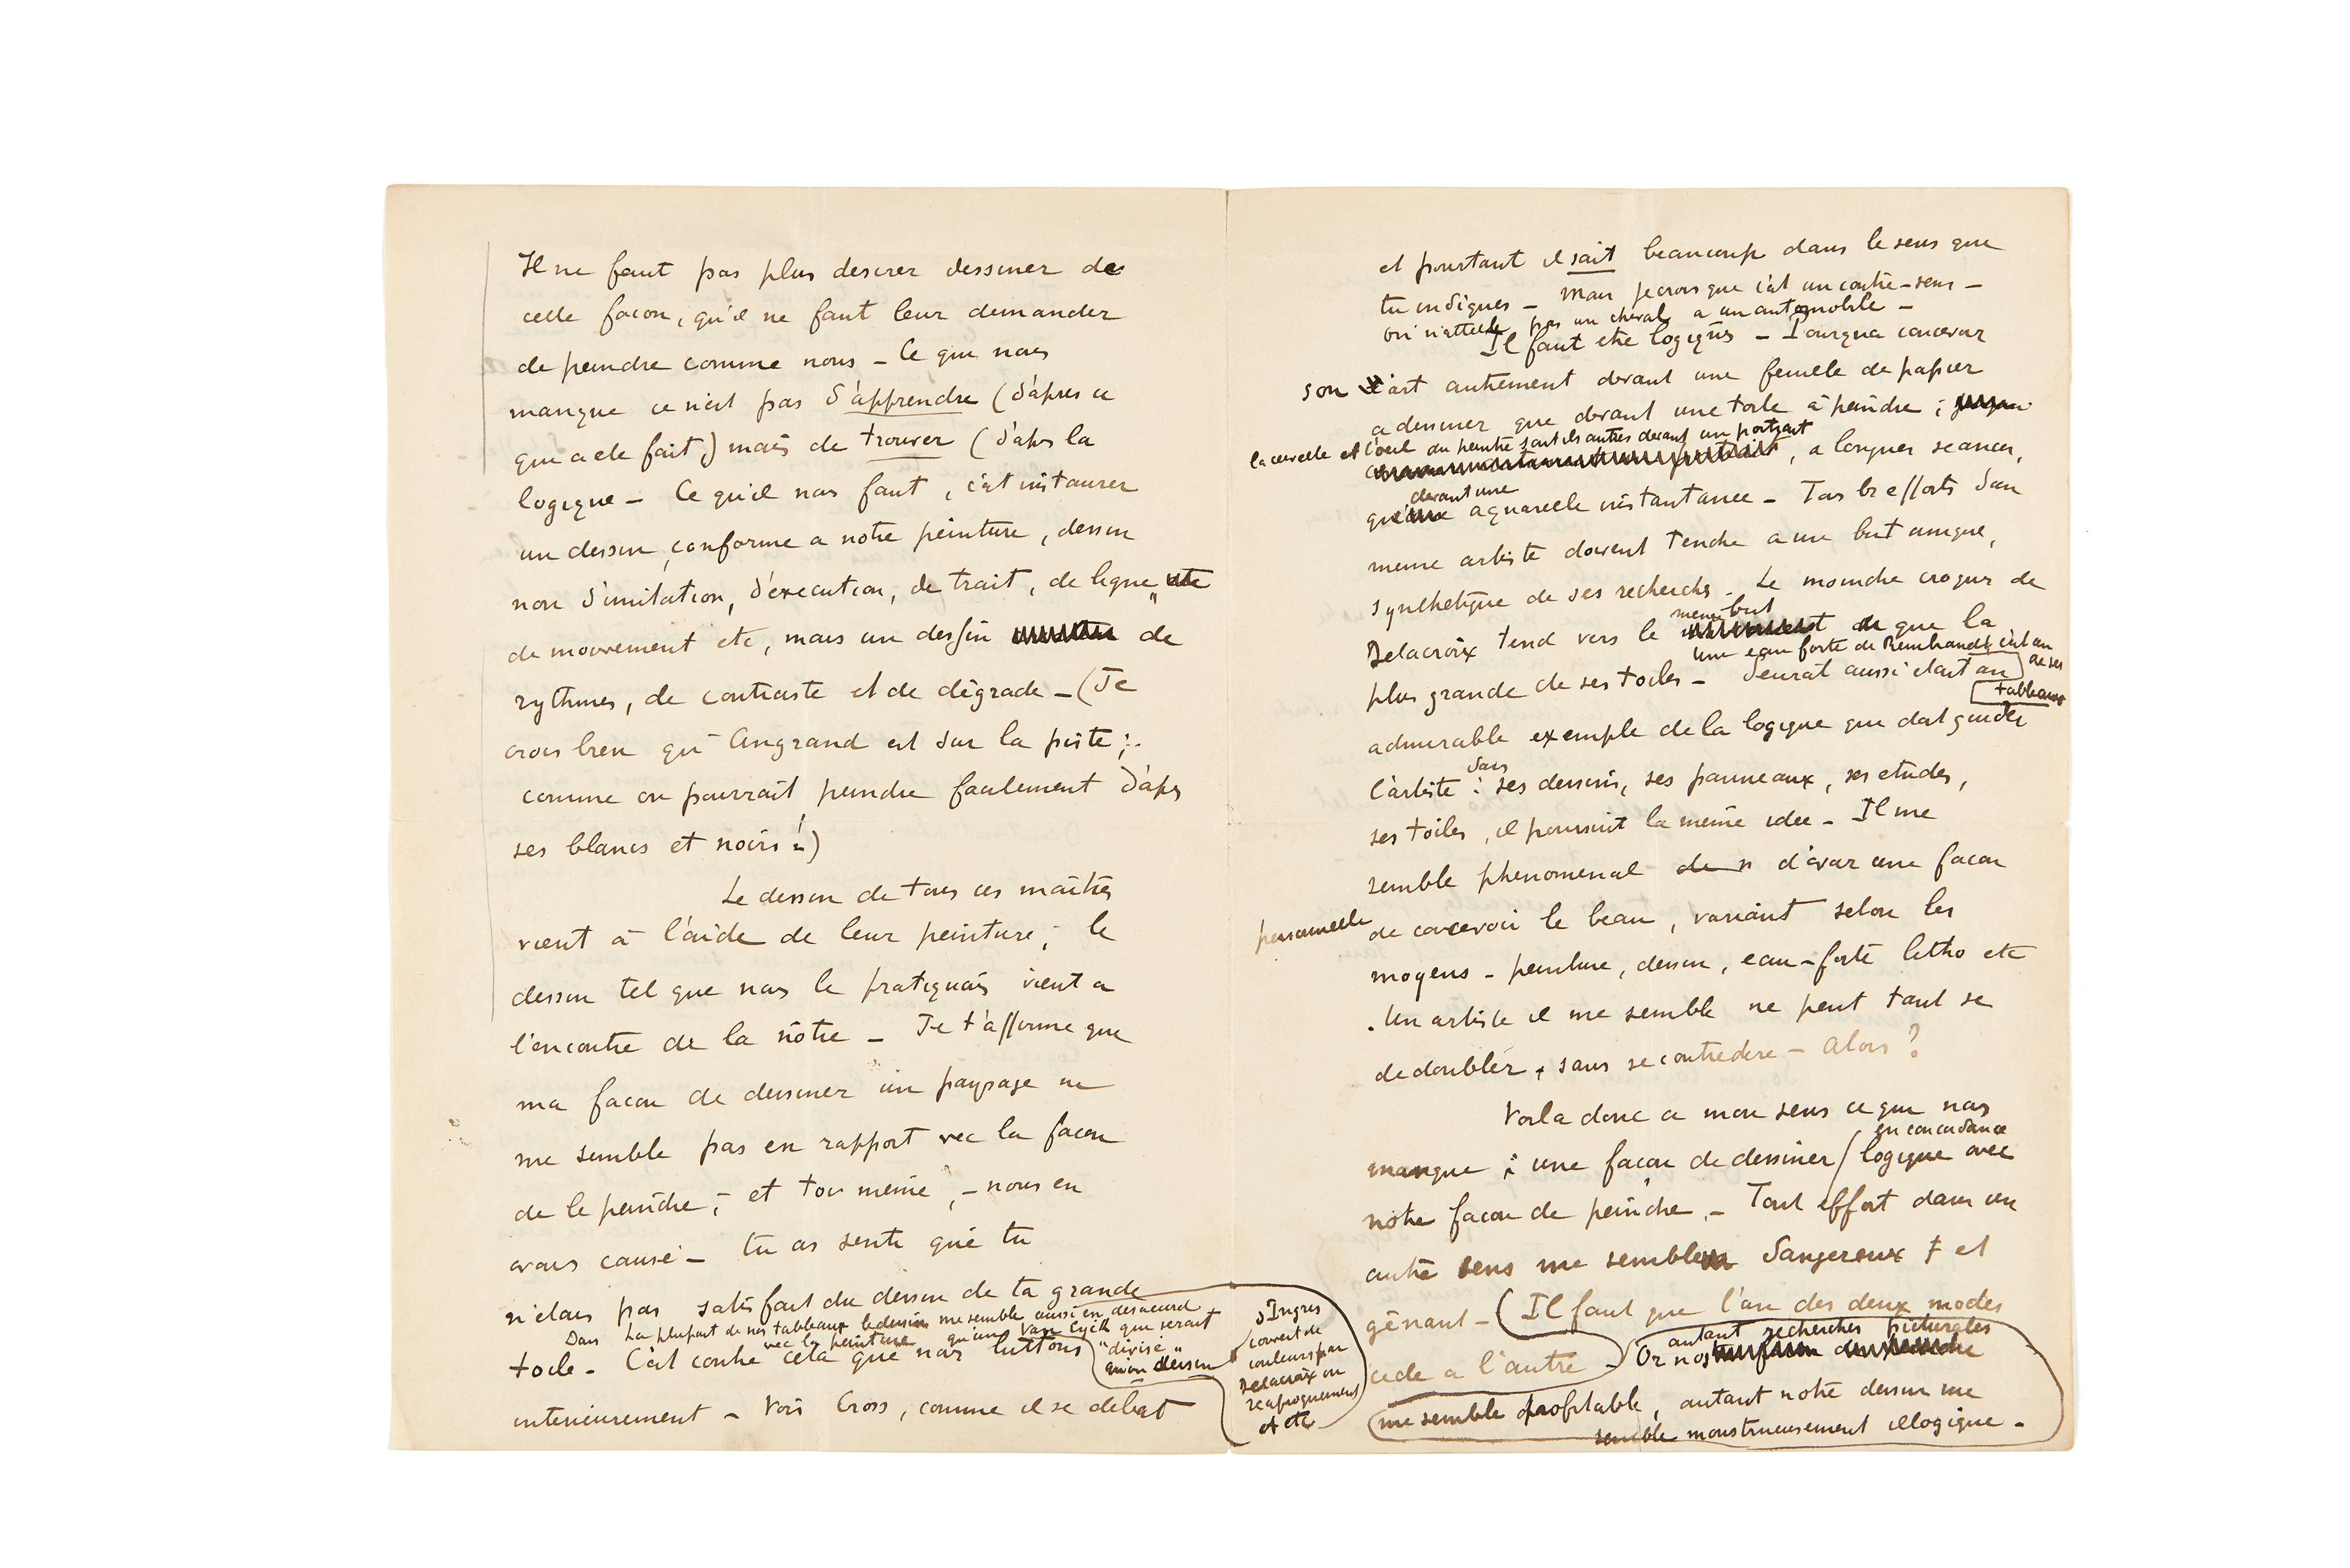 Il ne faut pas plus desirer dessiner de
celle façon, qu'il ne faut leur demander
de peindre comme nous – Ce que nous
manque ce n'est pas d'apprendre (d'apres ce
que a ete fait) mais de trouver (d'apres la
logique – Ce qu'il nous faut, c'est instaurer
un dessin, conforme a notre peinture, dessin
non d'imitation, d'execution, de trait, de ligne,
de mouvement etc, mais un dessin de
rythmes, de contraste et de dégradé – (Je
crois bien qu' Angrand est sur la piste ;
comme on pourrait peindre facilement d'après
ses blancs et noirs !)
Le dessin de tous ces maîtres
vient à l'aide de leur peinture ; le
dessin tel que nous le pratiquons vient a
l'encontre de la nôtre – Je t'affirme que
ma façon de dessiner un paysage ne
me semble pas en rapport avec la façon
de le peindre ; et toi même, – nous en
avons causé – tu as senti que tu
n'étais pas satisfait du dessin de ta grande
Dans la plupart de nos tableaux le dessin me semble aussi en desaccord
avec la peinture qu'un Van Eyck que serait
toile – C'est contre cela que nous luttons
"divisé"
qu'un dessin
d'Ingres
couvert de
couleurs par
Delacroix ou
reciproquement
et etc
interieurement – Vois Cross, comme il se débat
et pourtant il sait beaucoup dans le sens que
tu indiques – Mais je crois que c'est un contre-sens –
on n'attelle pas un cheval a un automobile –
Il faut etre logiques – Pourquoi concevoir
son art autrement devant une feuille de papier
a dessiner que devant une toile à peindre ;
la cervelle et l'oeil du peintre sont ils autres devant un portrait
, a longues seances,
devant une
qu' aquarelle instantanee – Tous les efforts d'un
meme artiste doivent tendre a un but unique,
synthetique de ses recherches. Le moindre croquis de
meme but
Delacroix tend vers le que la
une eau forte de Rembrandt c'est un
de ses
tableaux
plus grande de ses toiles – Seurat aussi etait un
admirable exemple de la logique que doit guider
l'artiste : dans ses dessins, ses panneaux, ses etudes,
ses toiles, il poursuit la même idee – Il me
semble phenomenal d'avoir une façon
personnelle
de concevoir le beau, variant selon les
moyens – peinture, dessin, eau-forte litho etc
. Un artiste il me semble ne peut tant se
dedoubler, sans se contredire – Alors ?
Voila donc a mon sens ce que nous
en concordance
manque : une façon de dessiner / logique avec
notre façon de peindre. – Tout effort dans un
autre sens me semble dangereux et
gênant – (Il faut que l'un des deux modes
cede a l'autre –)
autant recherches picturales
Or nos
me semble profitable, autant notre dessin me
semble monstrueusement illogique –